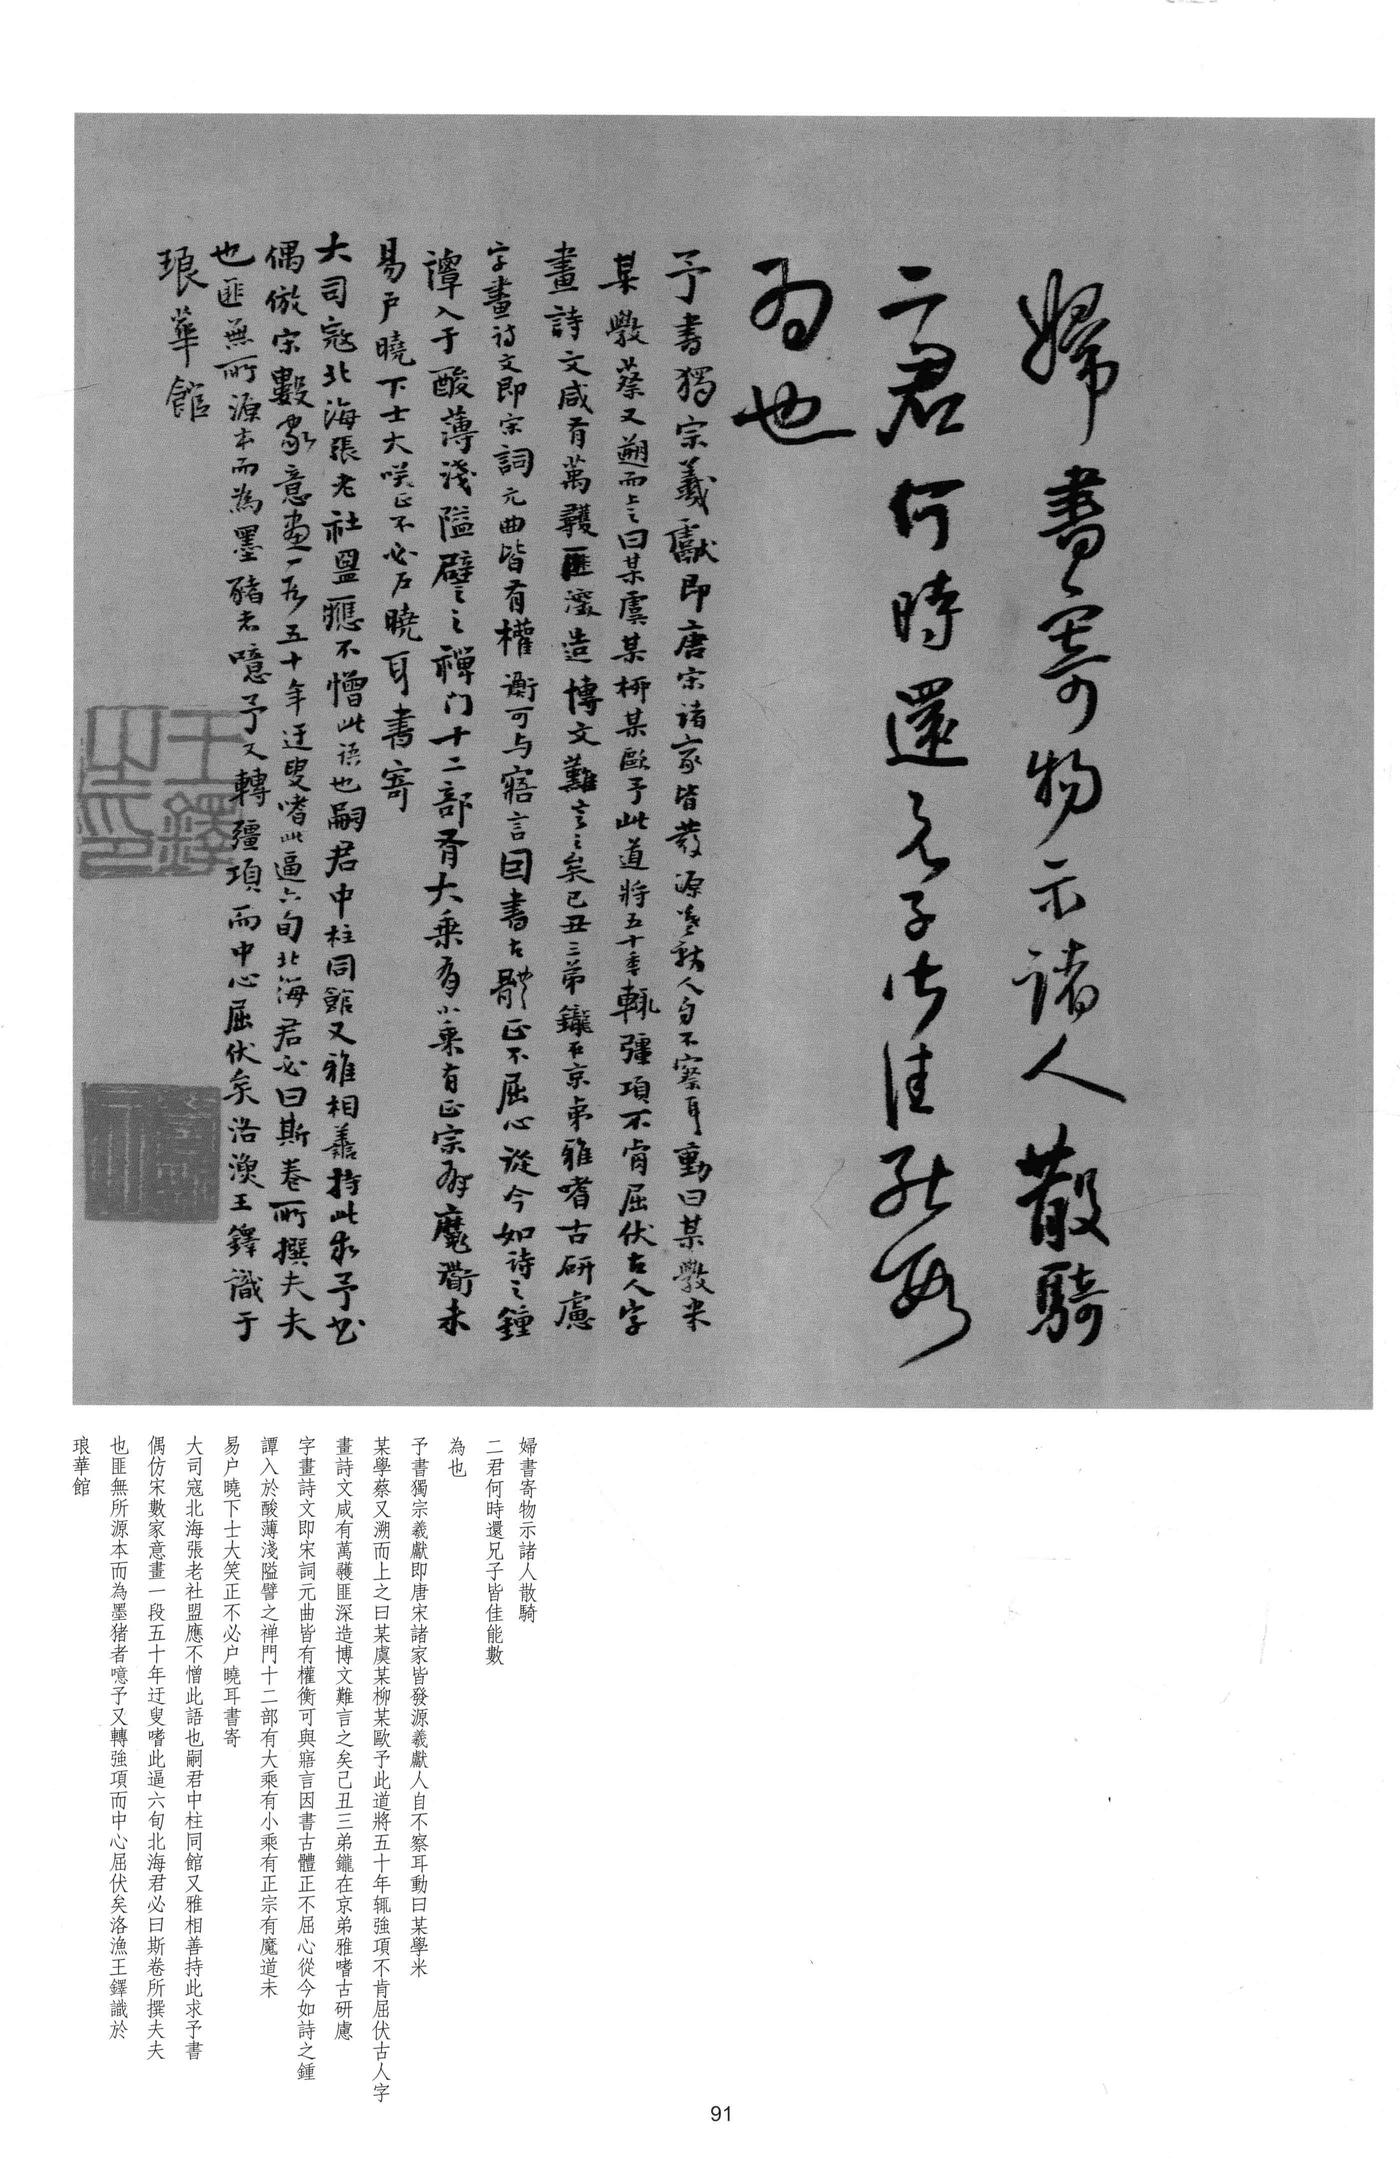 婦書寄物示諸人散騎
二君何時還兄子皆佳能數
為也
予書獨宗羲獻即唐宋諸家皆發源羲獻人自不察耳動曰某學米
某學蔡又遡而上之曰某虞某柳某歐予此道將五十年輒彊項不肯屈伏古人字
畫詩文咸有萬彠匪深造博文難言之矣己丑三弟鑨在京弟雅嗜古研慮
字畫詩文即宋詞元曲皆有權衡可与寤言因書古體正不屈心從今如詩之鍾
譚入于酸薄淺隘譬之禅门十二部有大乘有小乘有正宗有魔衜未
易户曉下士大咲正不必户曉耳書寄
大司寇北海張老社盟應不憎此语也嗣君中柱同館又雅相善持此求予书
偶倣宋數家意畫一段五十年迂叟嗜此逼六旬北海君必曰斯卷所撰夫夫
也匪無所源本而為墨豬者噫予又轉彊項而中心屈伏矣洛漁王鐸識于
琅華館
王鐸之印
婦書寄物示諸人散騎
二君何時還兄子皆佳能數
為也
予書獨宗羲獻即唐宋諸家皆發源羲獻人自不察耳動曰某學米
某學蔡又溯而上之曰某虞某柳某歐予此道將五十年辄強項不肯屈伏古人字
畫詩文咸有萬彠匪深造博文難言之矣己丑三弟鑨在京弟雅嗜古研慮
字畫詩文即宋詞元曲皆有權衡可與寤言因書古體正不屈心從今如詩之鍾
譚入於酸薄淺隘譬之禅門十二部有大乘有小乘有正宗有魔道未
易户曉下士大笑正不必户曉耳書寄
大司寇北海張老社盟應不憎此語也嗣君中柱同館又雅相善持此求予書
偶仿宋數家意畫一段五十年迂叟嗜此逼六旬北海君必曰斯卷所撰夫夫
也匪無所源本而為墨猪者噫予又轉強項而中心屈伏矣洛漁王鐸識於
琅華館
91